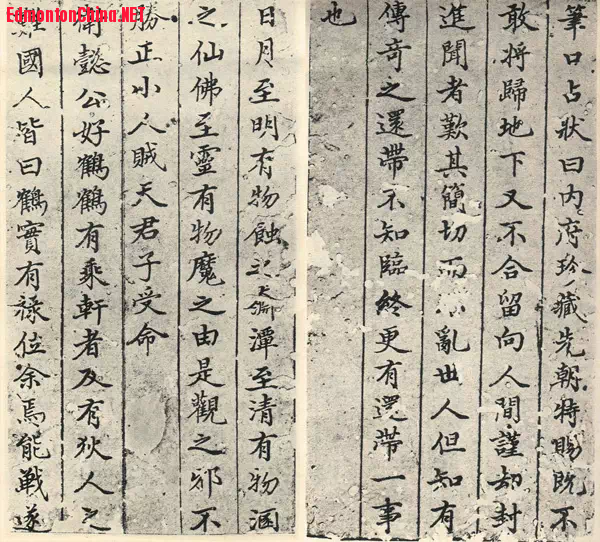 EdmontonChina.NET
筆口占狀曰內府珍藏先朝特賜既不
敢將歸地下又不合留向人間謹却封
進聞者歎其簡切而不亂世人但知有
傳奇之還帶不知臨終更有還帶一事
也
日月至明有物蝕之天御潭至清有物溷
之仙佛至靈有物魔之由是觀之邪不
勝正小人賊天君子受命
衛懿公好鶴鶴有乘軒者及有狄人之
難國人皆曰鶴實有祿位余焉能戰遂